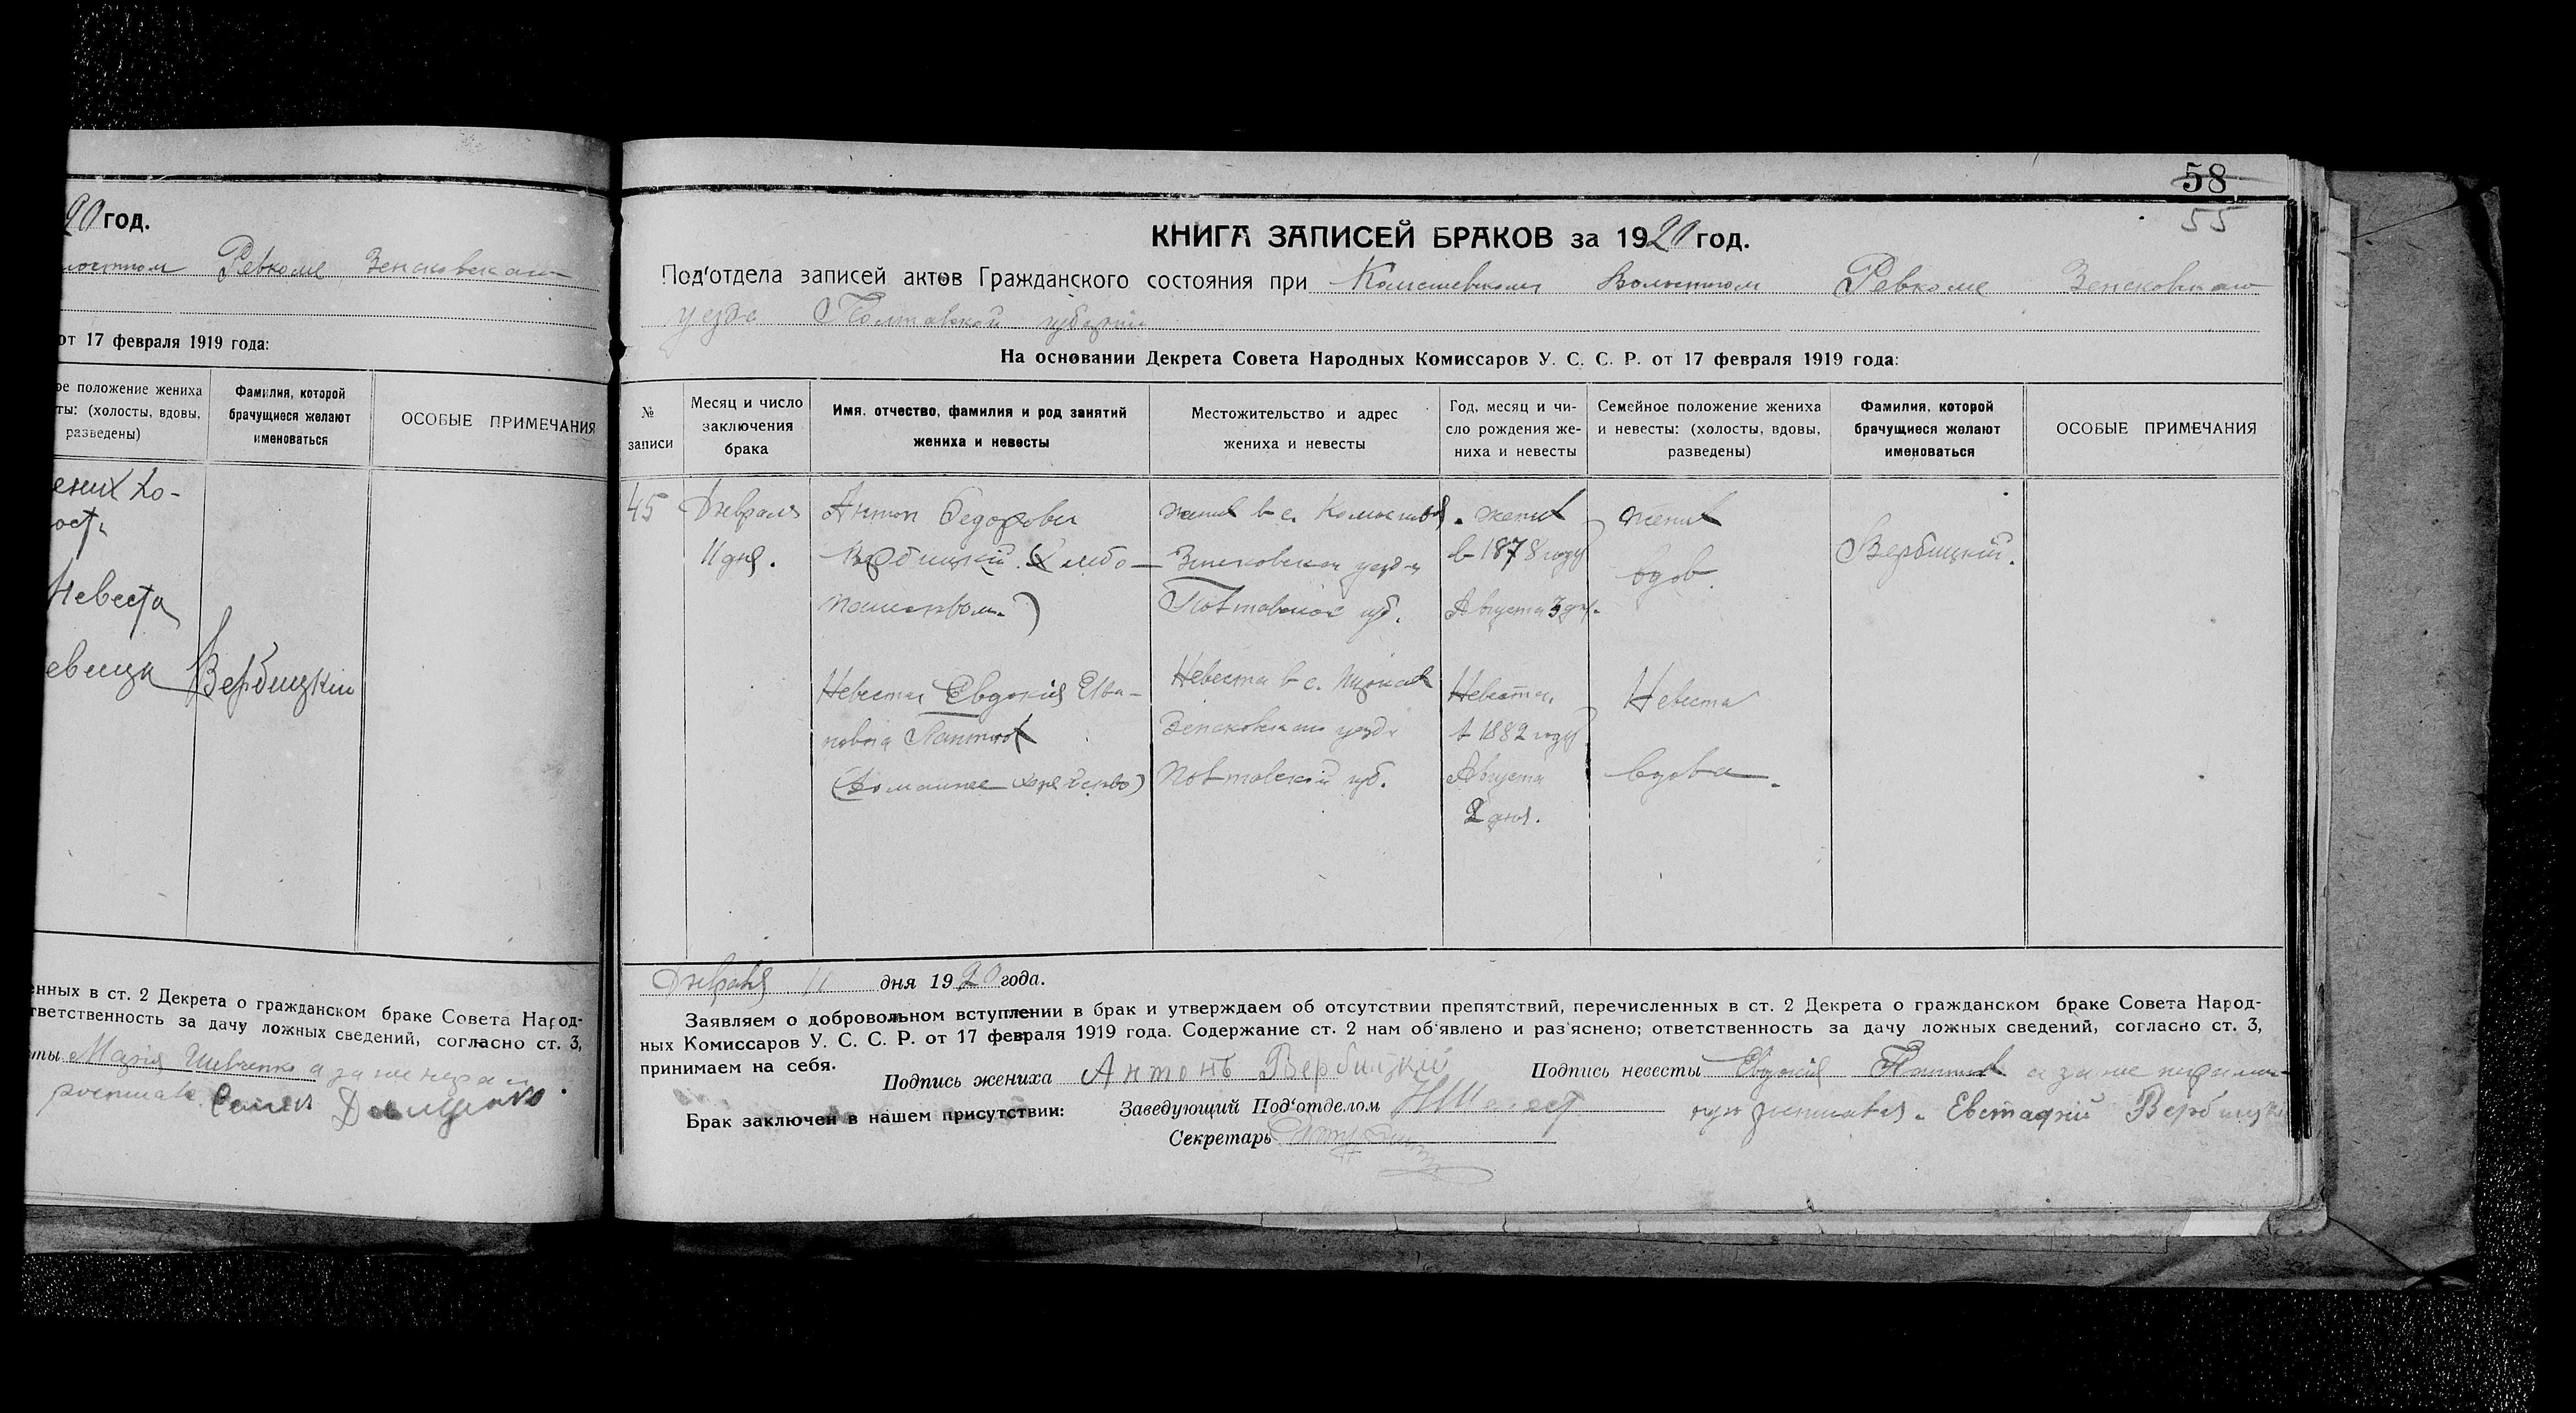 20 год.
Ревкоме Зеньковскаго
от 17 февраля 1919 года:
ое положение жениха
ты: (холосты, вдовы,
разведены)
Фамилия, которой
брачущиеся желают
именоваться
ОСОБЫЕ ПРИМЕЧАНИЯ
ених хо-
ост.
Невеста
евица Вербицкий
енных в ст. 2 Декрета о гражданском браке Совета Народ-
тветственность за дачу ложных сведений, согласно ст. 3,
ты Мария Шевченко а за не
Семен
58
55
КНИГА ЗАПИСЕЙ БРАКОВ за 1920 год.
Под'отдела записей актов Гражданского состояния при Комышевском Волостном Ревкоме Зеньковскаго
уезда Полтавской губернии
На основании Декрета Совета Народных Комиссаров У. С. С. Р. от 17 февраля 1919 года:
№
записи
Месяц и число
заключения
брака
Имя, отчество, фамилия и род занятий
жениха и невесты
Местожительство и адрес
жениха и невесты
Год, месяц и чи-
сло рождения же-
ниха и невесты
Семейное положение жениха
и невесты: (холосты, вдовы,
разведены)
Фамилия, которой
брачущиеся желают
именоваться
ОСОБЫЕ ПРИМЕЧАНИЯ
45
Февраля
11 дня.
Антон Федорович
Вербицкий (хлебо-
пашеством)
Невеста Евдокия Ива-
новна
(домашнее хозяйство)
жених в с.
Зеньковскаго уезда
Полтавской губ.
Невеста в с.
Зеньковскаго уезда
Полтавской губ.
жених
в 1878 году
Августа 3 дня.
Невеста
в 1882 году
Августа
2 дня.
жених
вдов.
Невеста
вдова.
Вербицкий.
Февраля 11 дня 1920 года.
Заявляем о добровольном вступлении в брак и утверждаем об отсутствии препятствий, перечисленных в ст. 2 Декрета о гражданском браке Совета Народ-
ных Комиссаров У. С. С. Р. от 17 февраля 1919 года. Содержание ст. 2 нам об'явлено и раз'яснено; ответственность за дачу ложных сведений, согласно ст. 3,
принимаем на себя.
Подпись жениха Антонъ Вербицкий
Подпись невесты Евдокия а за не
Брак заключен в нашем присутствии:
Заведующий Под'отделом
Евстафий Вербицкий
Секретарь